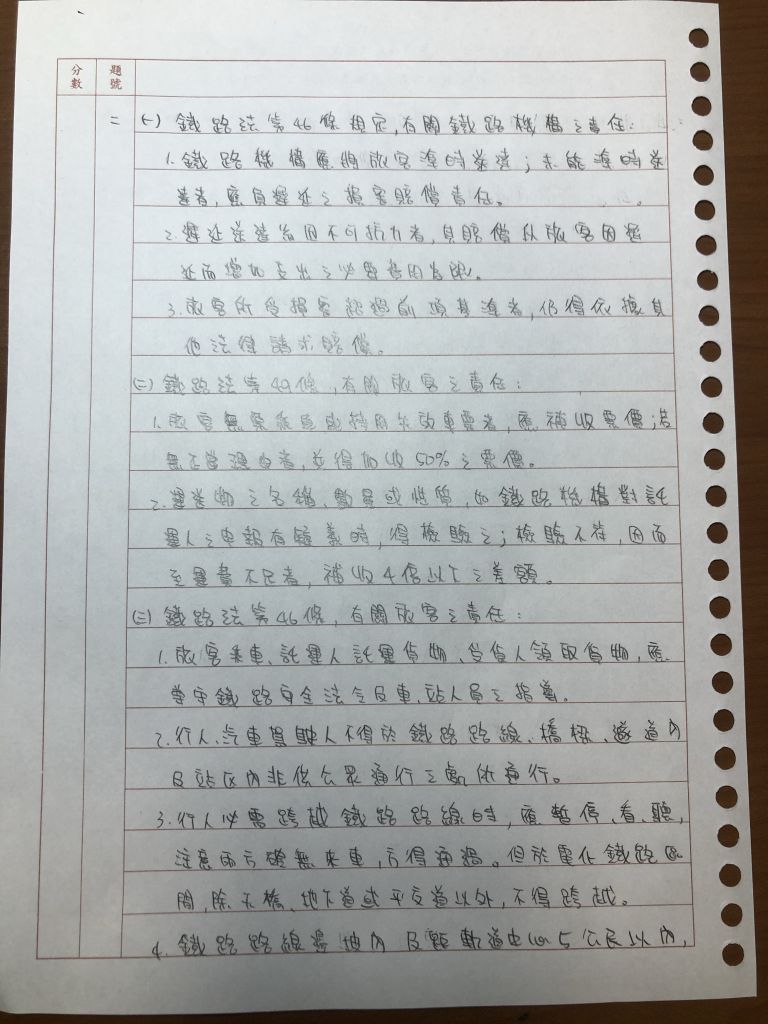 分數 題號
二 (一) 鐵路法第46條規定,有關鐵路機構之責任:
1.鐵路機構應將旅客準時送達;未能準時送
達者,應負遲延之損害賠償責任。
2.遲延送達若因不可抗力者,其賠償以旅客因遲
延而增加支出之必要費用為限。
3.旅客所受損害超過前項基準者,仍得依據其
他法律請求賠償。
(二)鐵路法第49條,有關旅客之責任:
1.旅客無票乘車或持用失效車票者,應補收票價;若
無正當理由者,並得加收50%之票價。
2.運送物之名稱、數量或性質,如鐵路機構對託
運人之申報有疑義時,得檢驗之;檢驗不符,因而
至運費不足者,補收4倍以下之差額。
(三)鐵路法第46條,有關旅客之責任:
1.旅客乘車、託運人託運貨物、受貨人領取貨物,應
遵守鐵路安全法令及車、站人員之指導。
2.行人、汽車駕駛人不得於鐵路路線、橋樑、遂道內
及站區內非供公眾通行之處所通行。
3.行人必需跨越鐵路路線時,應暫停、看、聽,
注意兩方確無來車,方得通過。但於電化鐵路區
間,除天橋、地下道或平交道以外,不得跨越。
4.鐵路路線邊坡內及距軌道中心5公尺以內,